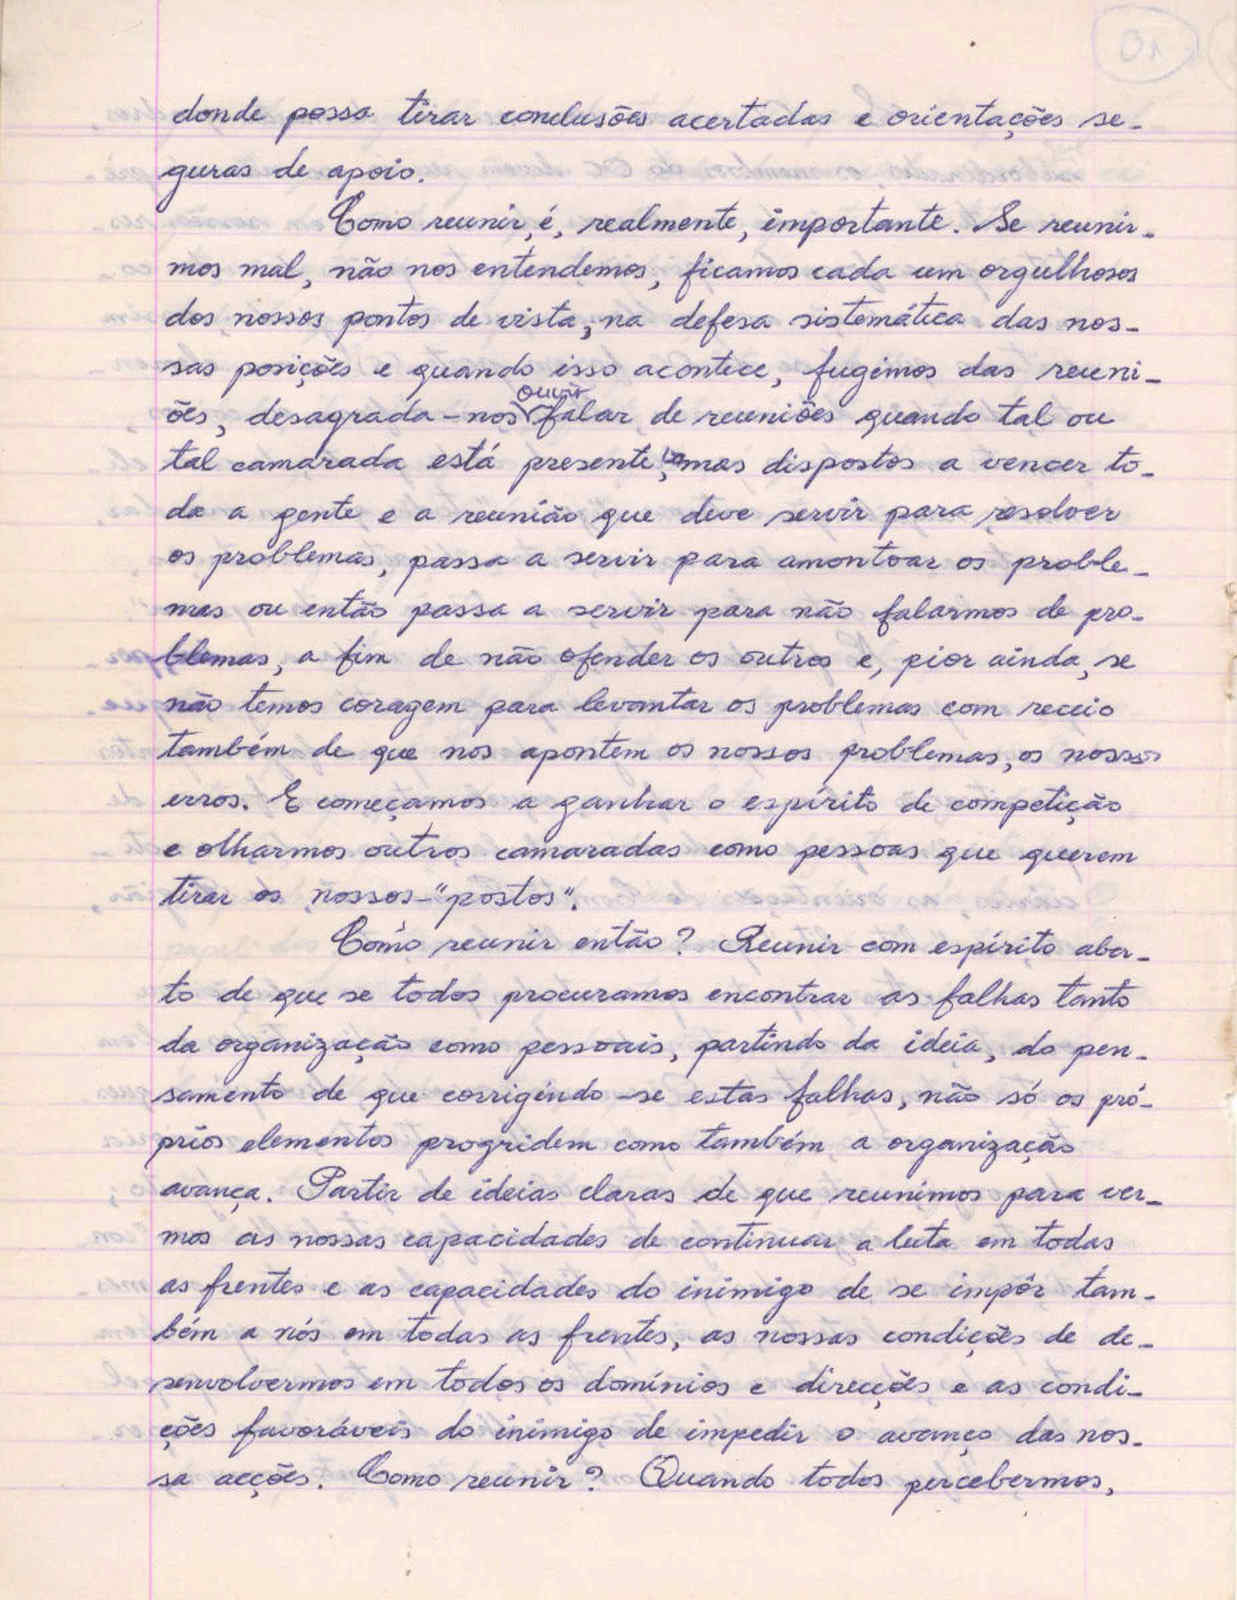 10
donde possa tirar conclusões acertadas e orientações se-
guras de apoio.
Como reunir, é, realmente, importante. Se reunir-
mos mal, não nos entendemos, ficamos cada um orgulhosos
dos nossos pontos de vista, na defesa sistemática das nos-
sas posições e quando isso acontece, fugimos das reuni-
ões, desagrada-nos ouvir falar de reuniões quando tal ou
tal camarada está presente, vamos dispostos a vencer to-
da a gente e a reunião que deve servir para resolver
os problemas, passa a servir para amontoar os proble-
mas ou então passa a servir para não falarmos de pro-
blemas, a fim de não ofender os outros e, pior ainda, se
não temos coragem para levantar os problemas com receio
também de que nos apontem os nossos problemas, os nossos
erros. E começamos a ganhar o espírito de competição
e olharmos outros camaradas como pessoas que querem
tirar os nossos "postos".
Como reunir então? Reunir com espírito aber-
to de que se todos procuramos encontrar as falhas tanto
da organização como pessoais, partindo da ideia, do pen-
samento de que corrigindo-se estas falhas, não só os pró-
prios elementos progridem como também a organização
avança. Partir de ideias claras de que reunimos para ver-
mos as nossas capacidades de continuar a luta em todas
as frentes e as capacidades do inimigo de se impôr tam-
bém a nós em todas as frentes, as nossas condições de de-
senvolvermos em todos os domínios e direcções e as condi-
ções favoráveis do inimigo de impedir o avanço das nos-
sa acções. Como reunir? Quando todos percebermos,